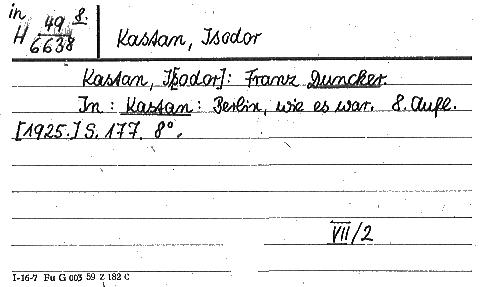 in
H 49 8.
6638
Kastan, Isodor
Kastan, I[sodor]: Franz Duncker.
In: Kastan: Berlin, wie es war. 8. Aufl.
[1925.] S. 177. 8°.
VII/2
I-16-7 Fu G 003 59 Z 182 C